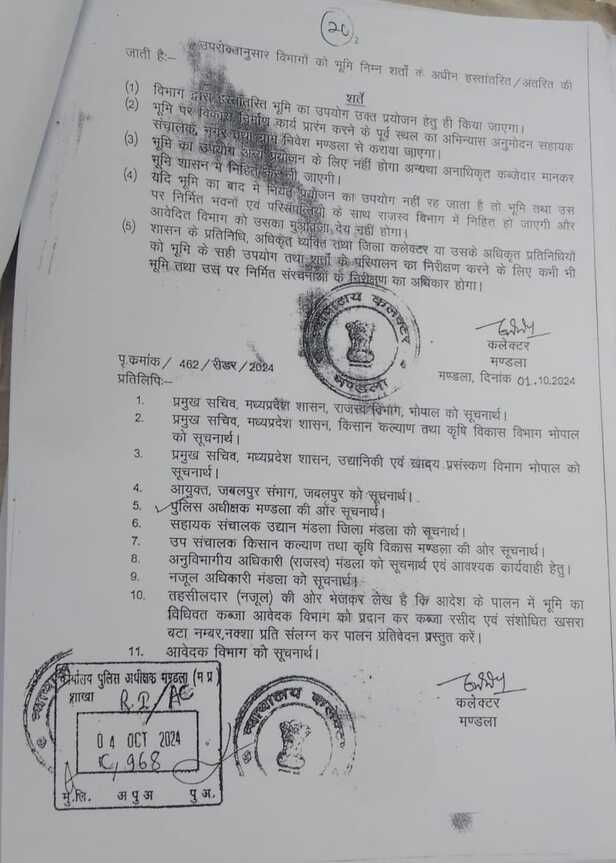 20
2
उपरोक्तानुसार विभागों को भूमि निम्न शर्तों के अधीन हस्तांतरित/अंतरित की
जाती है:–
शर्ते
(1) विभाग द्वारा हस्तांतरित भूमि का उपयोग उक्त प्रयोजन हेतु ही किया जाएगा।
(2) भूमि पर विकास निर्माण कार्य प्रारंभ करने के पूर्व स्थल का अभिन्यास अनुमोदन सहायक
संचालक, नगर तथा ग्राम निवेश मण्डला से कराया जाएगा।
(3) भूमि का उपयोग अन्य प्रयोजन के लिए नहीं होगा अन्यथा अनाधिकृत कब्जेदार मानकर
भूमि शासन में निहित जाएगी।
(4) यदि भूमि का बाद में नियत प्रयोजन का उपयोग नहीं रह जाता है तो भूमि तथा उस
पर निर्मित भवनों एवं परिसंपत्तियों के साथ राजस्व विभाग में निहित हो जाएगी और
आवेदित विभाग को उसका मुआवजा देय नहीं होगा।
(5) शासन के प्रतिनिधि, अधिकृत व्यक्ति तथा जिला कलेक्टर या उसके अधिकृत प्रतिनिधियों
को भूमि के सही उपयोग तथा शर्तों के परिपालन का निरीक्षण करने के लिए कभी भी
भूमि तथा उस पर निर्मित संरचनाओं के निरीक्षण का अधिकार होगा।
न्यायालय कलेक्टर
मण्डला
कलेक्टर
मण्डला
पृ.कमांक / 462 / रीडर / 2024
मण्डला, दिनांक 01.10.2024
प्रतिलिपि:–
1. प्रमुख सचिव, मध्यप्रदेश शासन, राजस्व विभाग, भोपाल को सूचनार्थ।
2. प्रमुख सचिव, मध्यप्रदेश शासन, किसान कल्याण तथा कृषि विकास विभाग भोपाल
को सूचनार्थ।
3. प्रमुख सचिव, मध्यप्रदेश शासन, उद्यानिकी एवं खाद्य प्रसंस्करण विभाग भोपाल को
सूचनार्थ।
4. आयुक्त, जबलपुर संभाग, जबलपुर को सूचनार्थ।
5. पुलिस अधीक्षक मण्डला की ओर सूचनार्थ।
6. सहायक संचालक उद्यान मंडला जिला मंडला को सूचनार्थ।
7. उप संचालक किसान कल्याण तथा कृषि विकास मण्डला की ओर सूचनार्थ।
8. अनुविभागीय अधिकारी (राजस्व) मंडला को सूचनार्थ एवं आवश्यक कार्यवाही हेतु।
9. नजूल अधिकारी मंडला को सूचनार्थ।
10. तहसीलदार (नजूल) की ओर भेजकर लेख है कि आदेश के पालन में भूमि का
विधिवत कब्जा आवेदक विभाग को प्रदान कर कब्जा रसीद एवं संशोधित खसरा
बटा नम्बर,नक्शा प्रति संलग्न कर पालन प्रतिवेदन प्रस्तुत करें।
11. आवेदक विभाग को सूचनार्थ।
कार्यालय पुलिस अधीक्षक मण्डला (म प्र)
शाखा R.I/AC
04 OCT 2024
968
मु.लि. अ पु अ पु अ.
न्यायालय कलेक्टर
कलेक्टर
मण्डला